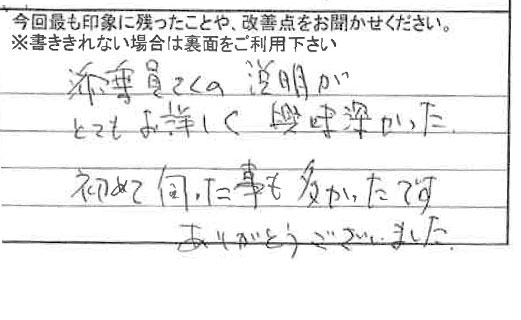 今回最も印象に残ったことや、改善点をお聞かせください。
※書ききれない場合は裏面をご利用下さい
添乗員さんの説明が
とてもお詳しく興味深かった。
初めて伺った事も多かったです
ありがとうございました。